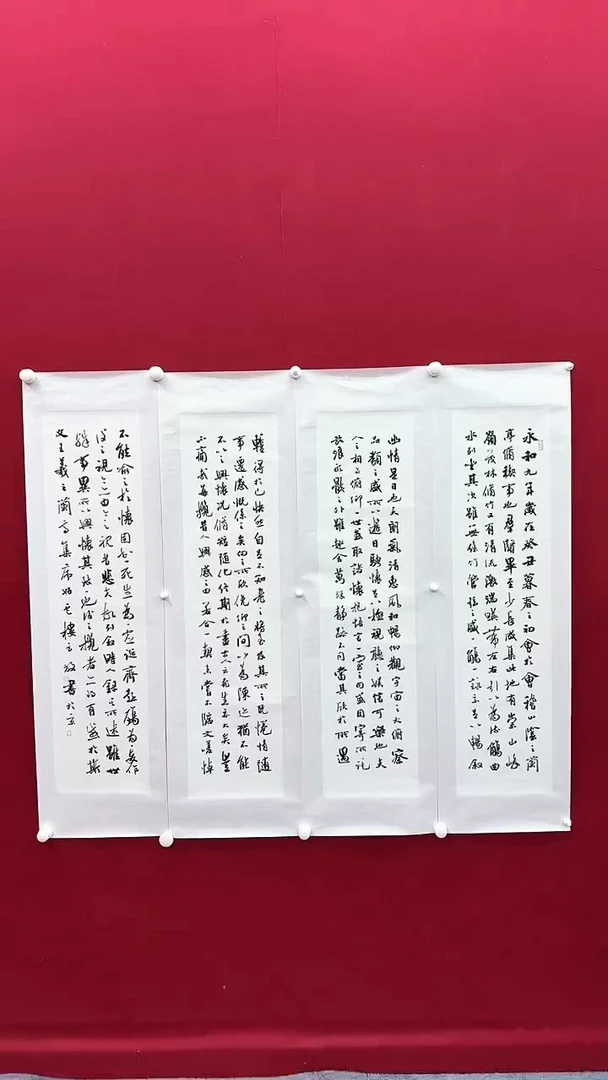 永和九年歲在癸丑暮春之初會於會稽山陰之蘭
亭脩稧事也羣賢畢至少長咸集此地有崇山峻
嶺茂林脩竹又有清流激湍暎帶左右引以為流觴曲
水列坐其次雖無絲竹管弦之盛一觴一詠亦足以暢敘
幽情是日也天朗氣清惠風和暢仰觀宇宙之大俯察
品類之盛所以遊目騁懷足以極視聽之娛信可樂也夫
人之相與俯仰一世或取諸懷抱悟言一室之內或因寄所託
放浪形骸之外雖趣舍萬殊靜躁不同當其欣於所遇
暫得於己快然自足不知老之將至及其所之既惓情隨
事遷感慨係之矣向之所欣俛仰之間以為陳迹猶不能
不以之興懷況脩短隨化終期於盡古人云死生亦大矣豈
不痛哉每攬昔人興感之由若合一契未嘗不臨文嗟悼
不能喻之於懷固知一死生為虛誕齊彭殤為妄作
後之視今亦由今之視昔悲夫故列敘時人錄其所述雖世
殊事異所以興懷其致一也後之攬者亦將有感於斯
文王羲之蘭亭集序樓主書於京